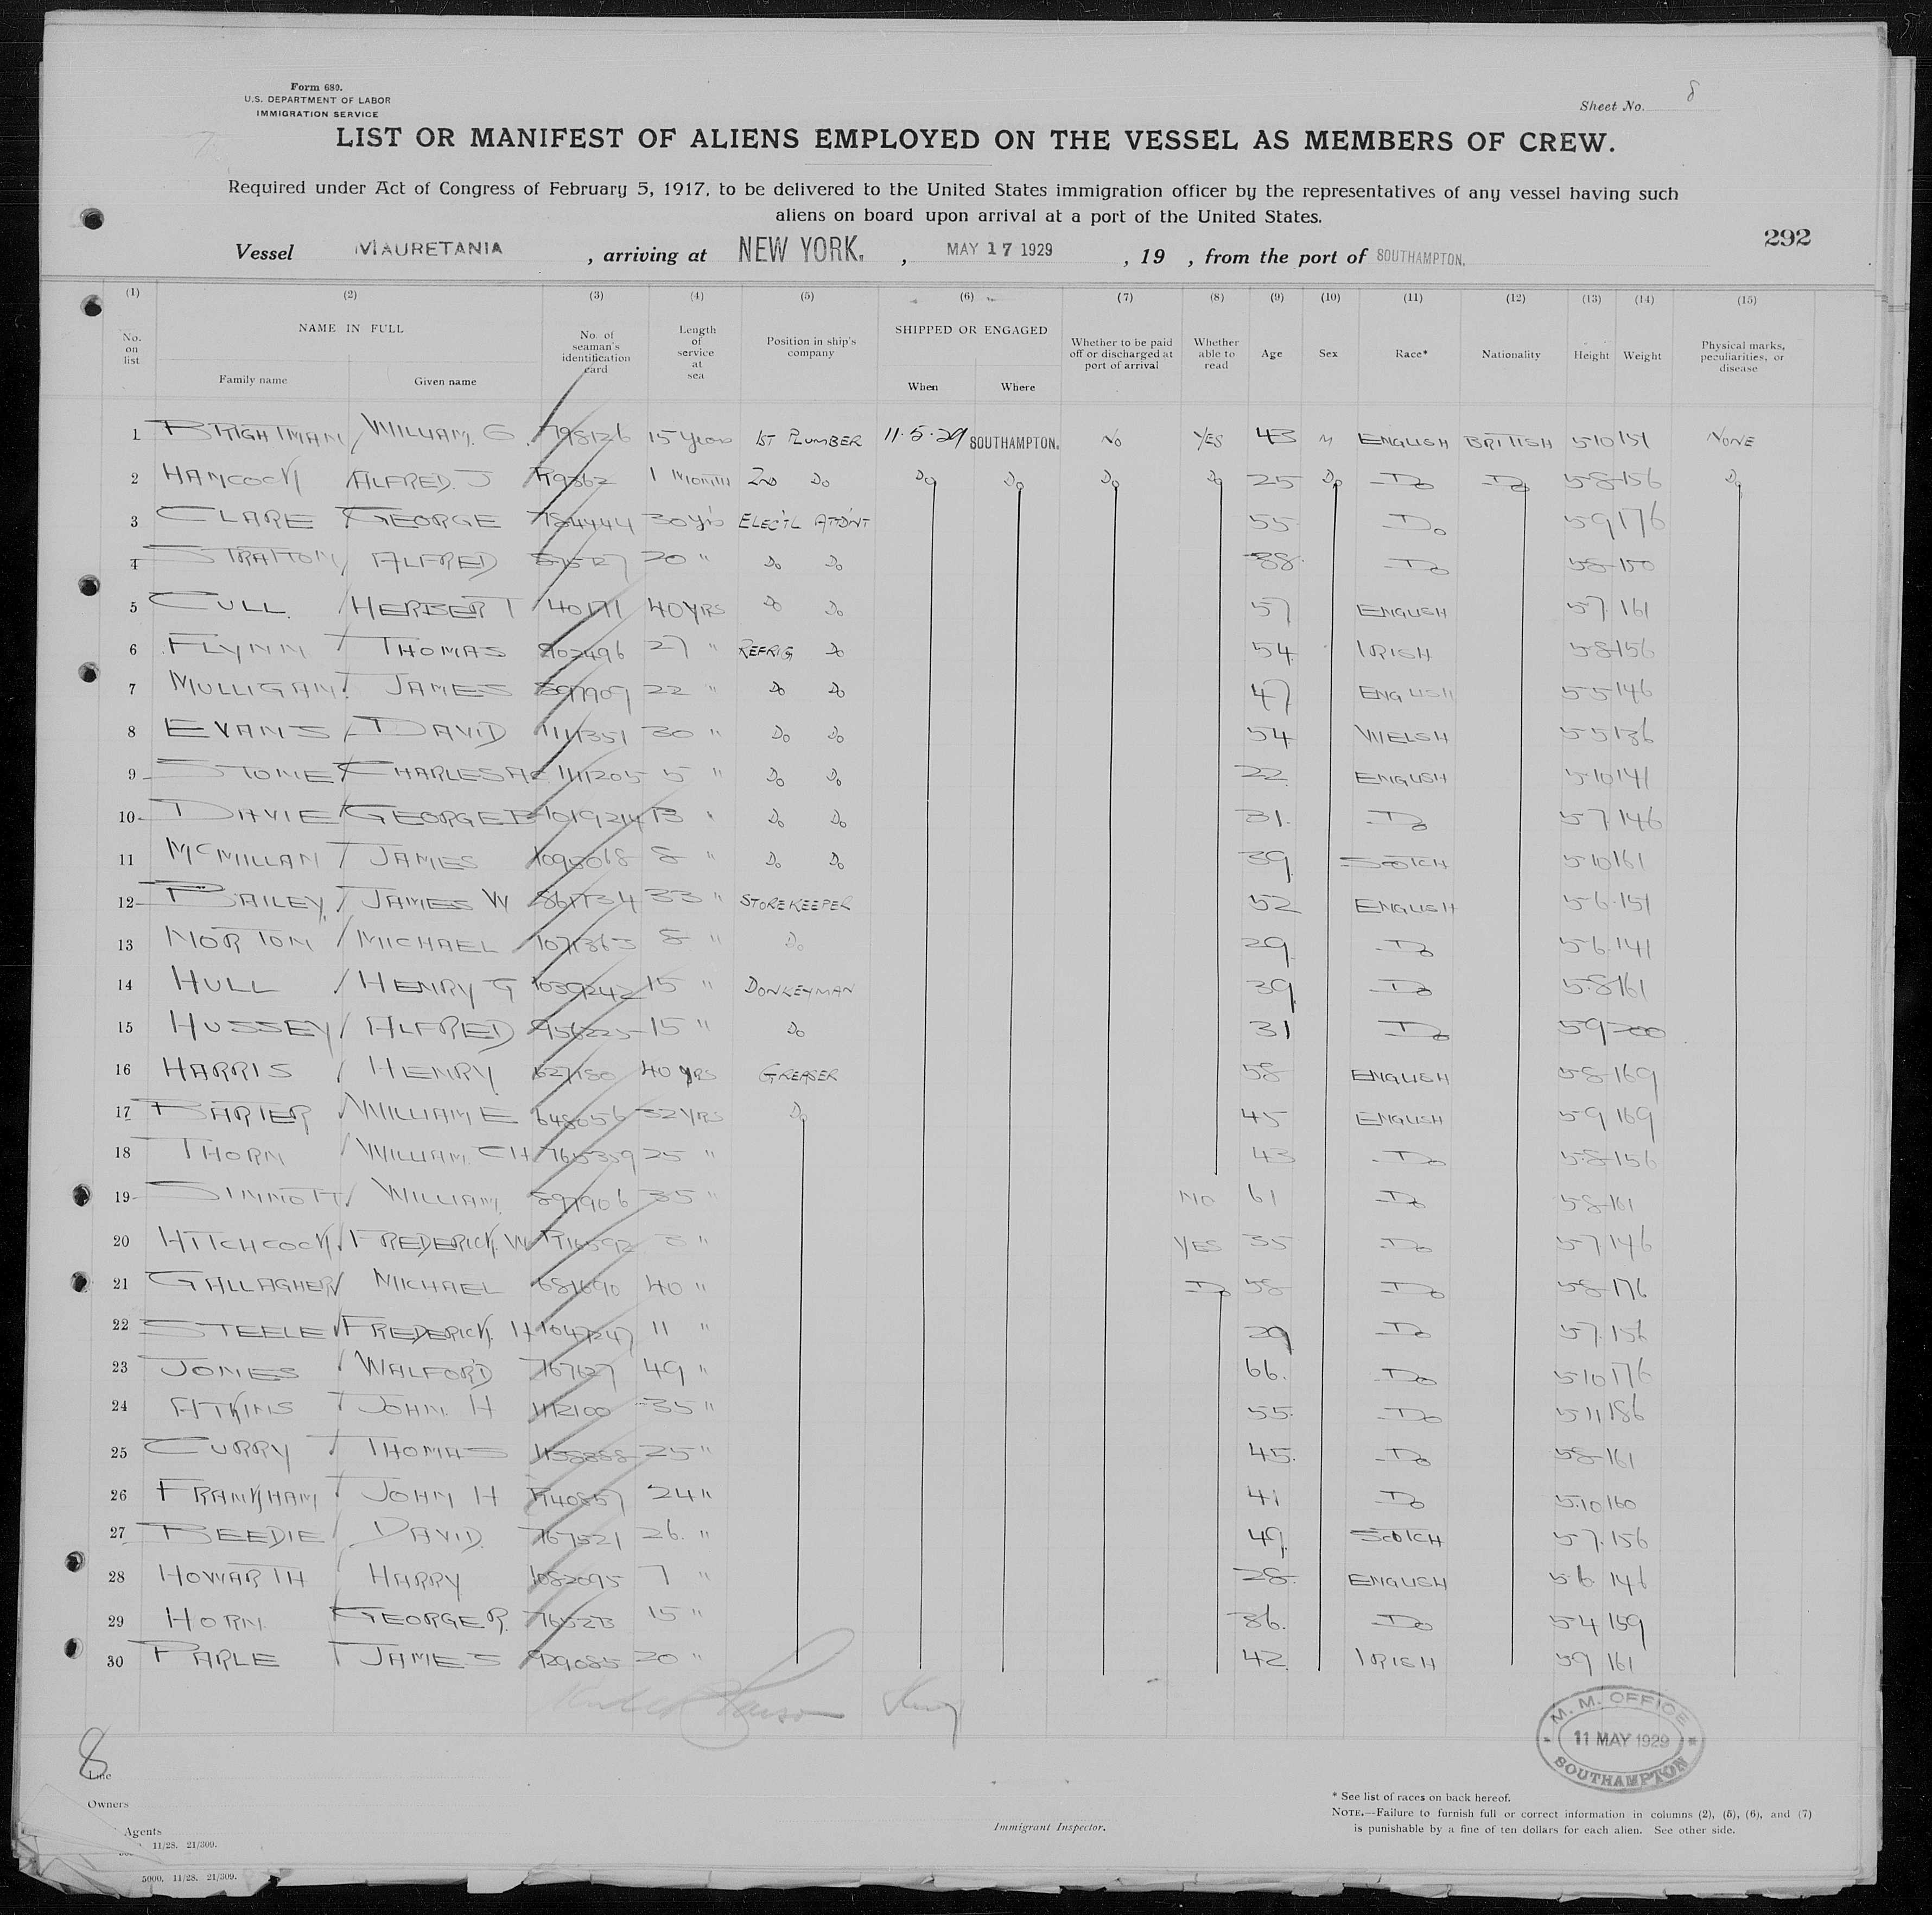 Form 680.
U.S. DEPARTMENT OF LABOR
IMMIGRATION SERVICE
Sheet No. 8
LIST OR MANIFEST OF ALIENS EMPLOYED ON THE VESSEL AS MEMBERS OF CREW.
Required under Act of Congress of February 5, 1917, to be delivered to the United States immigration officer by the representatives of any vessel having such
aliens on board upon arrival at a port of the United States.
292
Vessel MAURETANIA, arriving at NEW YORK., MAY 17 1929, 19 , from the port of SOUTHAMPTON.
(1) (2) (3) (4) (5) (6) (7) (8) (9) (10) (11) (12) (13) (14) (15)
No. on list NAME IN FULL Family name Given name No. of seaman's identification card Length of service at sea Position in ship's company SHIPPED OR ENGAGED When Where Whether to be paid off or discharged at port of arrival Whether able to read Age Sex Race* Nationality Height Weight Physical marks, peculiarities, or disease
1 BRIGHTMAN WILLIAM. G. 798126 15 years 1ST PLUMBER 11.5.29 SOUTHAMPTON. NO YES 43 M ENGLISH BRITISH 5-10 151 NONE
2 HANCOCK ALFRED. J 1 MONTH 2ND Do Do Do Do Do 25 Do Do Do 5-8 156 Do
3 CLARE GEORGE 30 yrs ELEC'L ATTDNT 55 Do 5 9 176
4 STRATTON ALFRED 20 " Do Do 38 Do 5-8 150
5 CULL. HERBERT 40171 40 YRS Do Do 57 ENGLISH 5-7 161
6 FLYNN THOMAS 902496 27 " REFRIG Do 54 IRISH 5-8 156
7 MULLIGAN. JAMES 897909 22 " Do Do 47 ENGLISH 5-5 146
8 EVANS DAVID 1111351 30 " Do Do 54 WELSH 5-5 136
9 STONE CHARLES 1111205 5 " Do Do 22 ENGLISH 5-10 141
10 DAVIE GEORGE 1019214 13 " Do Do 31. Do 5-7 146
11 MCMILLAN JAMES 1095068 8 " Do Do 39 SCOTCH 5-10 161
12 BAILEY, JAMES W 861734 33 " STOREKEEPER 52 ENGLISH 5-6 151
13 NORTON MICHAEL 1071363 8 " Do 29 Do 5-6 141
14 HULL HENRY G 1039242 15 " DONKEYMAN 39 Do 5-8 161
15 HUSSEY ALFRED 956225 15 " Do 31 Do 5-9 200
16 HARRIS HENRY 627180 40 YRS GREASER 58 ENGLISH 5-8 169
17 BARTER WILLIAM E 648056 32 YRS Do 45 ENGLISH 5-9 169
18 THORN WILLIAM. CH 765359 25 " 43 Do 5-8 156
19 SINNOTT WILLIAM. 897906 35 " NO 61 Do 5-8 161
20 HITCHCOCK. FREDERICK. W " YES 35 Do 5-7 146
21 GALLAGHER MICHAEL 681690 40 " Do 58 Do 5-8 176
22 STEELE FREDERICK. H 1047247 11 " 29 Do 5-7 156
23 JONES WALFORD 767127 49 " 66. Do 5-10 176
24 ATKINS JOHN. H 1112100 35 " 55. Do 5-11 186
25 CURRY THOMAS 25 " 45. Do 5-8 161
26 FRANKHAM JOHN H 24 " 41 Do 5.10 160
27 BEEDIE DAVID. 767521 26. " 49. SCOTCH 5-7. 156
28 HOWARTH HARRY 1082095 7 " 28. ENGLISH 5-6 146
29 HORN. GEORGE R. 15 " 36. Do 5-4 159
30 PARLE JAMES 929085 20 " 42. IRISH 5-9 161
M. M. OFFICE
11 MAY 1929
SOUTHAMPTON
8
Line
Owners
Agents
11/28. 21/309.
5000. 11/28. 21/309.
Immigrant Inspector.
* See list of races on back hereof.
NOTE.—Failure to furnish full or correct information in columns (2), (5), (6), and (7)
is punishable by a fine of ten dollars for each alien. See other side.